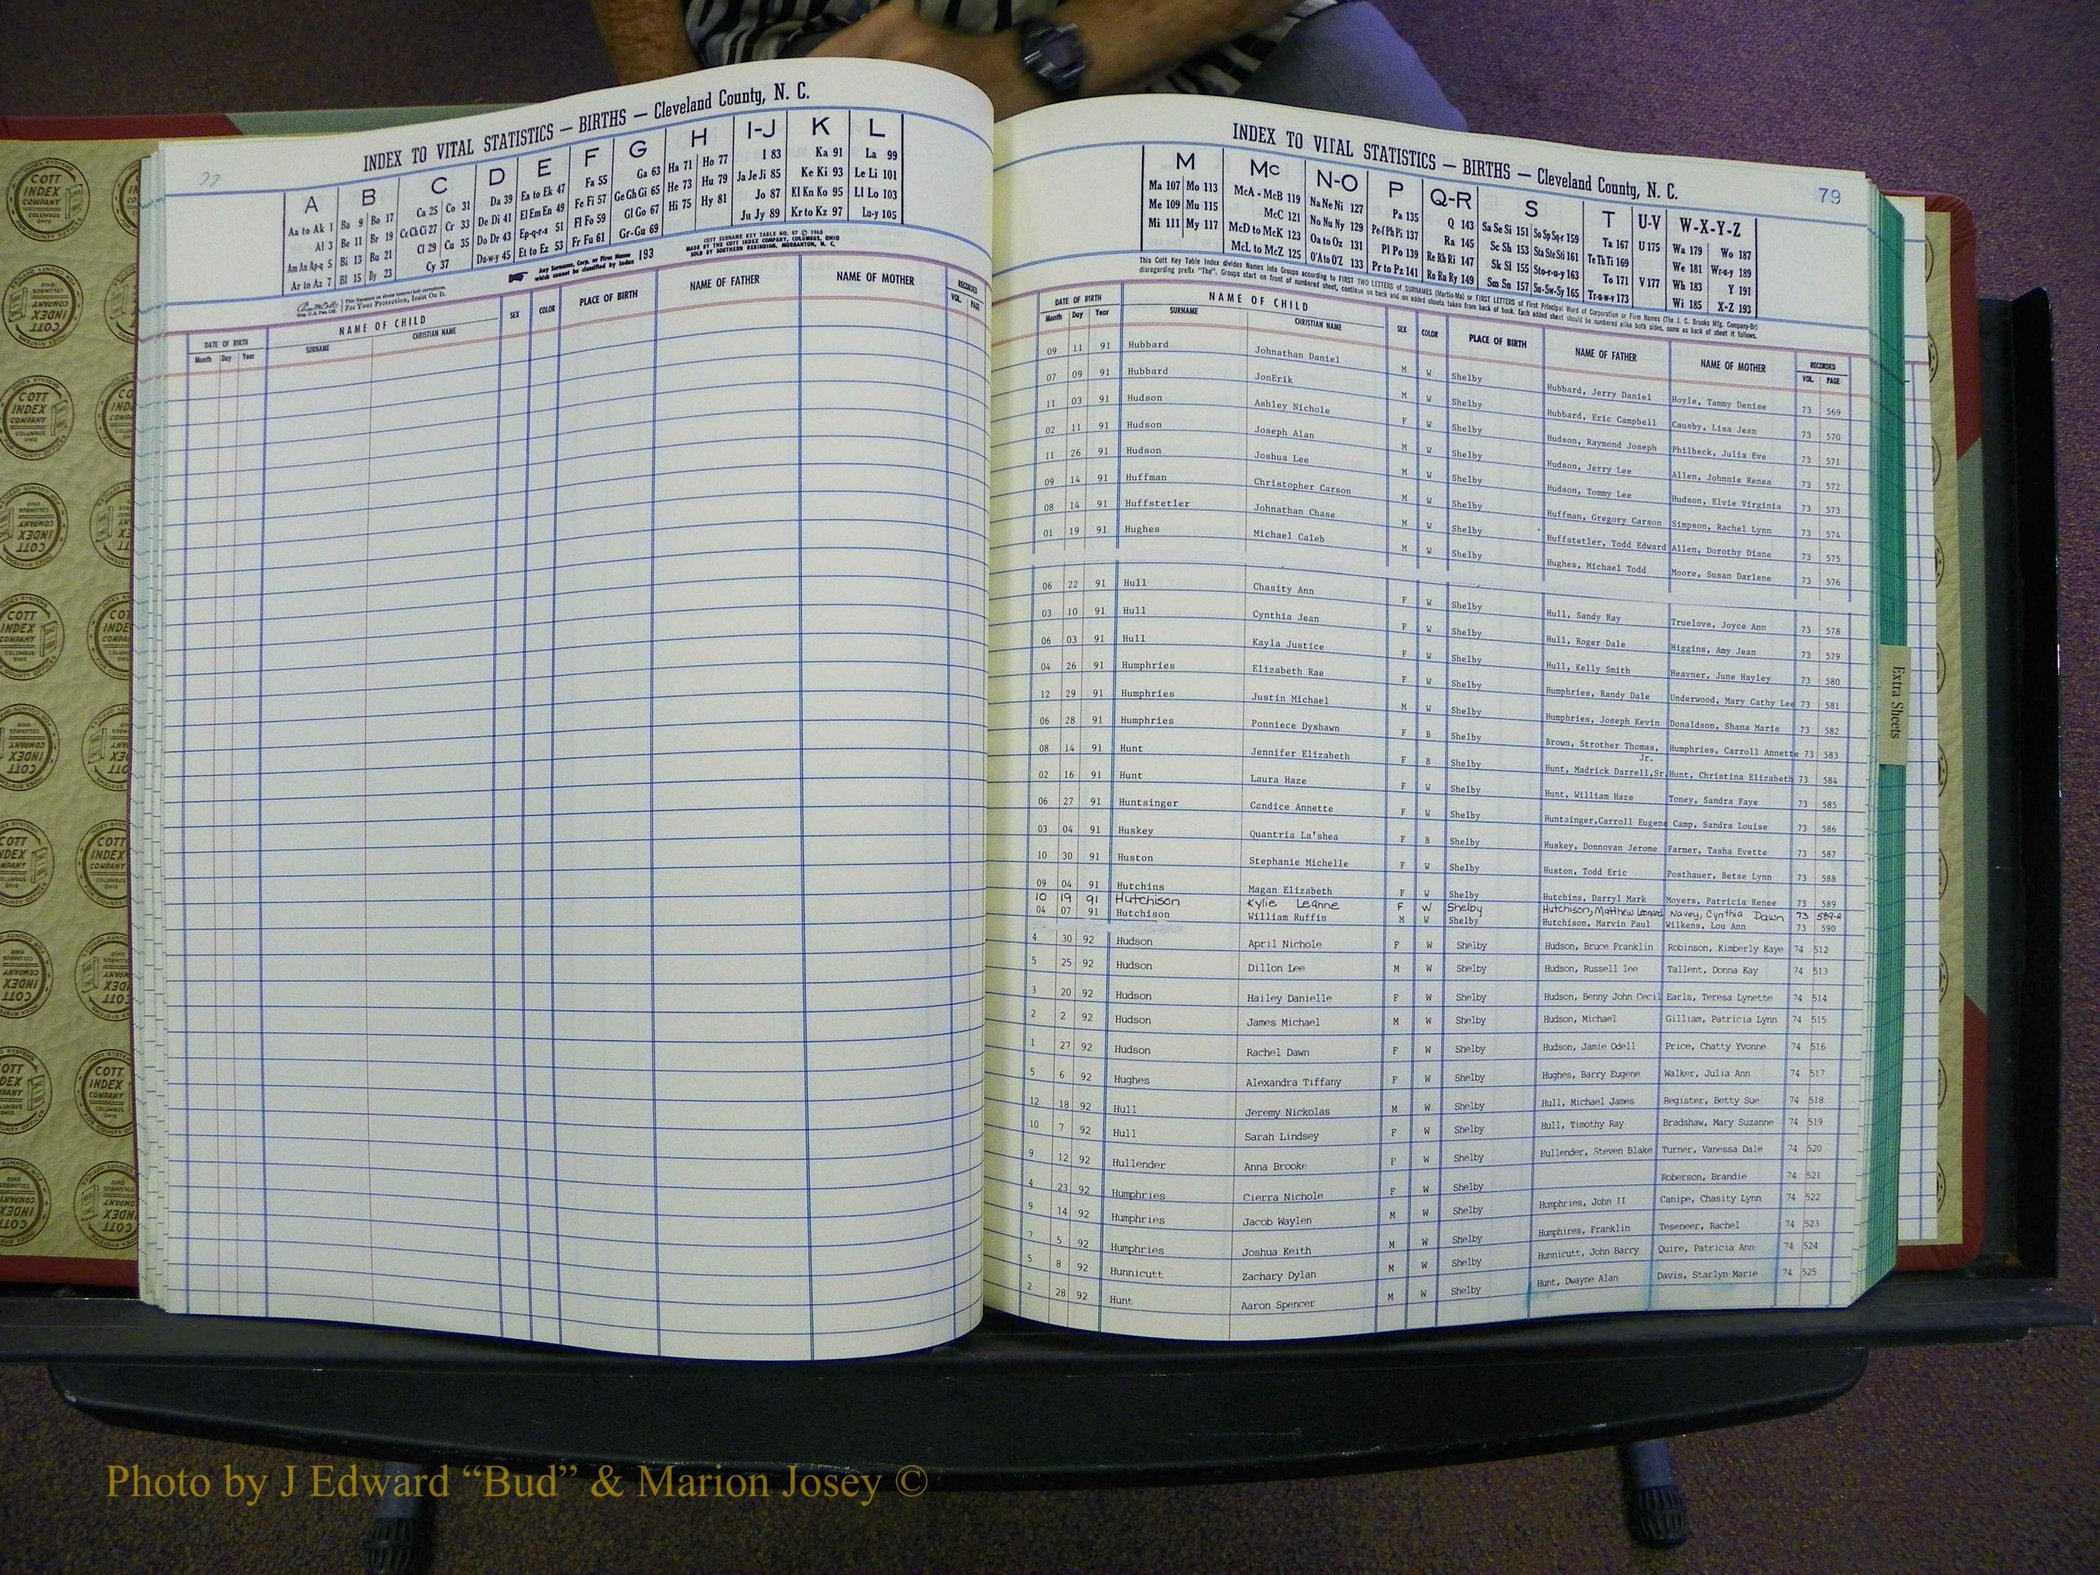 INDEX TO VITAL STATISTICS — BIRTHS — Cleveland County, N. C.
A B C D E F G H I-J K L
Aa to Ak 1 Ba 9 Bo 17 Ca 25 Co 31 Da 39 Ea to Ek 47 Fa 55 Ga 63 Ha 71 Ho 77 I 83 Ka 91 La 99
Al 3 Be 11 Br 19 Ce Ch Ci 27 Cr 33 De Di 41 El Em En 49 Fe Fi 57 Ge Gh Gi 65 He 73 Hu 79 Ja Je Ji 85 Ke Ki 93 Le Li 101
Am An Ap-q 5 Bi 13 Bu 21 Cl 29 Cu 35 Do Dr 43 Ep-q-r-s 51 Fl Fo 59 Gl Go 67 Hi 75 Hy 81 Jo 87 Kl Kn Ko 95 Ll Lo 103
Ar to Az 7 Bl 15 By 23 Cy 37 Du-w-y 45 Et to Ez 53 Fr Fu 61 Gr-Gu 69 Ju Jy 89 Kr to Kz 97 Lu-y 105
Any Surname, Corp. or Firm Name which cannot be classified by Index 193
COTT SURNAME KEY TABLE NO. 97 © 1960
MADE BY THE COTT INDEX COMPANY, COLUMBUS, OHIO
SOLD BY SOUTHERN REBINDING, MORGANTON, N. C.
This Signature on sheets insures their correctness.
For Your Protection, Insist On It.
DATE OF BIRTH NAME OF CHILD SEX COLOR PLACE OF BIRTH NAME OF FATHER NAME OF MOTHER RECORDED
Month Day Year SURNAME CHRISTIAN NAME VOL. PAGE
INDEX TO VITAL STATISTICS — BIRTHS — Cleveland County, N. C.
79
M Mc N-O P Q-R S T U-V W-X-Y-Z
Ma 107 Mo 113 McA - McB 119 Na Ne Ni 127 Pa 135 Q 143 Sa Se Si 151 So Sp Sq-r 159 Ta 167 U 175 Wa 179 Wo 187
Me 109 Mu 115 McC 121 No Nu Ny 129 Pe-f Ph Pi 137 Ra 145 Sc Sh 153 Sta Ste Sti 161 Te Th Ti 169 V 177 We 181 Wr-u-y 189
Mi 111 My 117 McD to McK 123 Oa to Oz 131 Pl Po 139 Re Rh Ri 147 Sk Sl 155 Sto-r-u-y 163 To 171 Wh 183 Y 191
McL to McZ 125 O'A to O'Z 133 Pr to Pz 141 Ro Ru Ry 149 Sm Sn 157 Su-Sw-Sy 165 Tr-u-w-y 173 Wi 185 X-Z 193
This Cott Key Table Index divides Names into Groups according to FIRST TWO LETTERS of SURNAMES (Martin-Ma) or FIRST LETTERS of First Principal Word of Corporation or Firm Names (The J. C. Brooks Mfg. Company-Br)
disregarding prefix "The". Groups start on front of numbered sheet, continue on back and on added sheets taken from back of book. Each added sheet should be numbered alike both sides, same as back of sheet it follows.
DATE OF BIRTH NAME OF CHILD SEX COLOR PLACE OF BIRTH NAME OF FATHER NAME OF MOTHER RECORDED
Month Day Year SURNAME CHRISTIAN NAME VOL. PAGE
09 11 91 Hubbard Johnathan Daniel M W Shelby Hubbard, Jerry Daniel Hoyle, Tammy Denise 73 569
07 09 91 Hubbard JonErik M W Shelby Hubbard, Eric Campbell Causby, Lisa Jean 73 570
11 03 91 Hudson Ashley Nichole F W Shelby Hudson, Raymond Joseph Philbeck, Julia Eve 73 571
02 11 91 Hudson Joseph Alan M W Shelby Hudson, Jerry Lee Allen, Johnnie Renea 73 572
11 26 91 Hudson Joshua Lee M W Shelby Hudson, Tommy Lee Hudson, Elvie Virginia 73 573
09 14 91 Huffman Christopher Carson M W Shelby Huffman, Gregory Carson Simpson, Rachel Lynn 73 574
08 14 91 Huffstetler Johnathan Chase M W Shelby Huffstetler, Todd Edward Allen, Dorothy Diane 73 575
01 19 91 Hughes Michael Caleb M W Shelby Hughes, Michael Todd Moore, Susan Darlene 73 576
06 22 91 Hull Chasity Ann F W Shelby Hull, Sandy Ray Truelove, Joyce Ann 73 578
03 10 91 Hull Cynthia Jean F W Shelby Hull, Roger Dale Higgins, Amy Jean 73 579
06 03 91 Hull Kayla Justice F W Shelby Hull, Kelly Smith Heavner, June Hayley 73 580
04 26 91 Humphries Elizabeth Rae F W Shelby Humphries, Randy Dale Underwood, Mary Cathy Lee 73 581
12 29 91 Humphries Justin Michael M W Shelby Humphries, Joseph Kevin Donaldson, Shana Marie 73 582
06 28 91 Humphries Ponniece Dyshawn F B Shelby Brown, Strother Thomas, Jr. Humphries, Carroll Annette 73 583
08 14 91 Hunt Jennifer Elizabeth F B Shelby Hunt, Madrick Darrell,Sr. Hunt, Christina Elizabeth 73 584
02 16 91 Hunt Laura Haze F W Shelby Hunt, William Haze Toney, Sandra Faye 73 585
06 27 91 Huntsinger Candice Annette F W Shelby Huntsinger,Carroll Eugene Camp, Sandra Louise 73 586
03 04 91 Huskey Quantria La'shea F B Shelby Huskey, Donnovan Jerome Farmer, Tasha Evette 73 587
10 30 91 Huston Stephanie Michelle F W Shelby Huston, Todd Eric Posthauer, Betse Lynn 73 588
09 04 91 Hutchins Magan Elizabeth F W Shelby Hutchins, Darryl Mark Moyers, Patricia Renee 73 589
10 19 91 Hutchison Kylie Leanne F W Shelby Hutchison, Matthew Leonard Navey, Cynthia Dawn 73 589-A
04 07 91 Hutchison William Ruffin M W Shelby Hutchison, Marvin Paul Wilkens, Lou Ann 73 590
4 30 92 Hudson April Nichole F W Shelby Hudson, Bruce Franklin Robinson, Kimberly Kaye 74 512
5 25 92 Hudson Dillon Lee M W Shelby Hudson, Russell lee Tallent, Donna Kay 74 513
3 20 92 Hudson Hailey Danielle F W Shelby Hudson, Benny John Cecil Earls, Teresa Lynette 74 514
2 2 92 Hudson James Michael M W Shelby Hudson, Michael Gilliam, Patricia Lynn 74 515
1 27 92 Hudson Rachel Dawn F W Shelby Hudson, Jamie Odell Price, Chatty Yvonne 74 516
5 6 92 Hughes Alexandra Tiffany F W Shelby Hughes, Barry Eugene Walker, Julia Ann 74 517
12 18 92 Hull Jeremy Nickolas M W Shelby Hull, Michael James Register, Betty Sue 74 518
10 7 92 Hull Sarah Lindsey F W Shelby Hull, Timothy Ray Bradshaw, Mary Suzanne 74 519
9 12 92 Hullender Anna Brooke F W Shelby Hullender, Steven Blake Turner, Vanessa Dale 74 520
4 23 92 Humphries Cierra Nichole F W Shelby Roberson, Brandie 74 521
9 14 92 Humphries Jacob Waylen M W Shelby Humphries, John II Canipe, Chasity Lynn 74 522
7 5 92 Humphries Joshua Keith M W Shelby Humphires, Franklin Teseneer, Rachel 74 523
5 8 92 Hunnicutt Zachary Dylan M W Shelby Hunnicutt, John Barry Quire, Patricia Ann 74 524
2 28 92 Hunt Aaron Spencer M W Shelby Hunt, Dwayne Alan Davis, Starlyn Marie 74 525
Extra Sheets
COTT INDEX COMPANY
COLUMBUS OHIO
Photo by J Edward “Bud” & Marion Josey ©